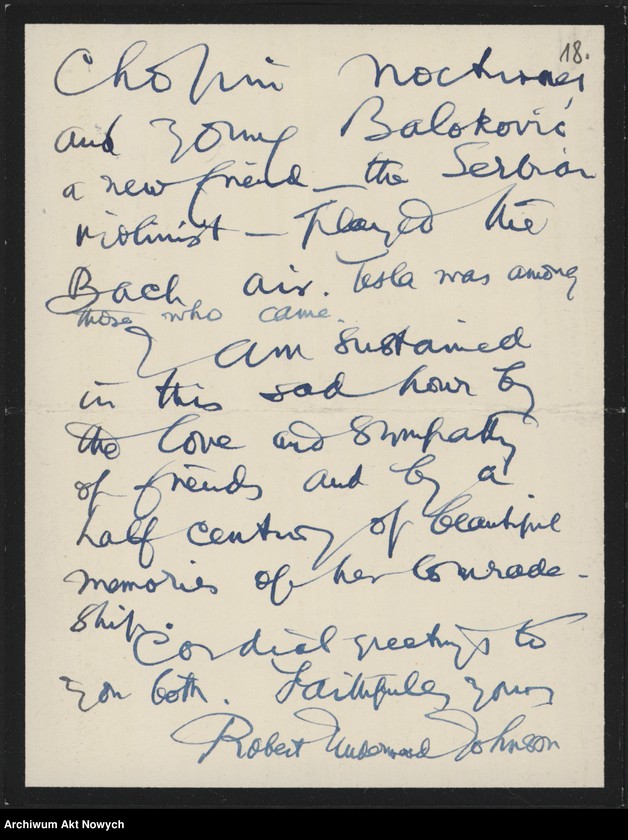 18.
Chopin nocturnes
and young Baloković
a new friend — the Serbian
violinist — played the
Bach air. Tesla was among
those who came.
I am sustained
in this sad hour by
the love and sympathy
of friends and by a
half century of beautiful
memories of her comrade-
ship.
Cordial greetings to
you both. Faithfully yours
Robert Underwood Johnson
Archiwum Akt Nowych